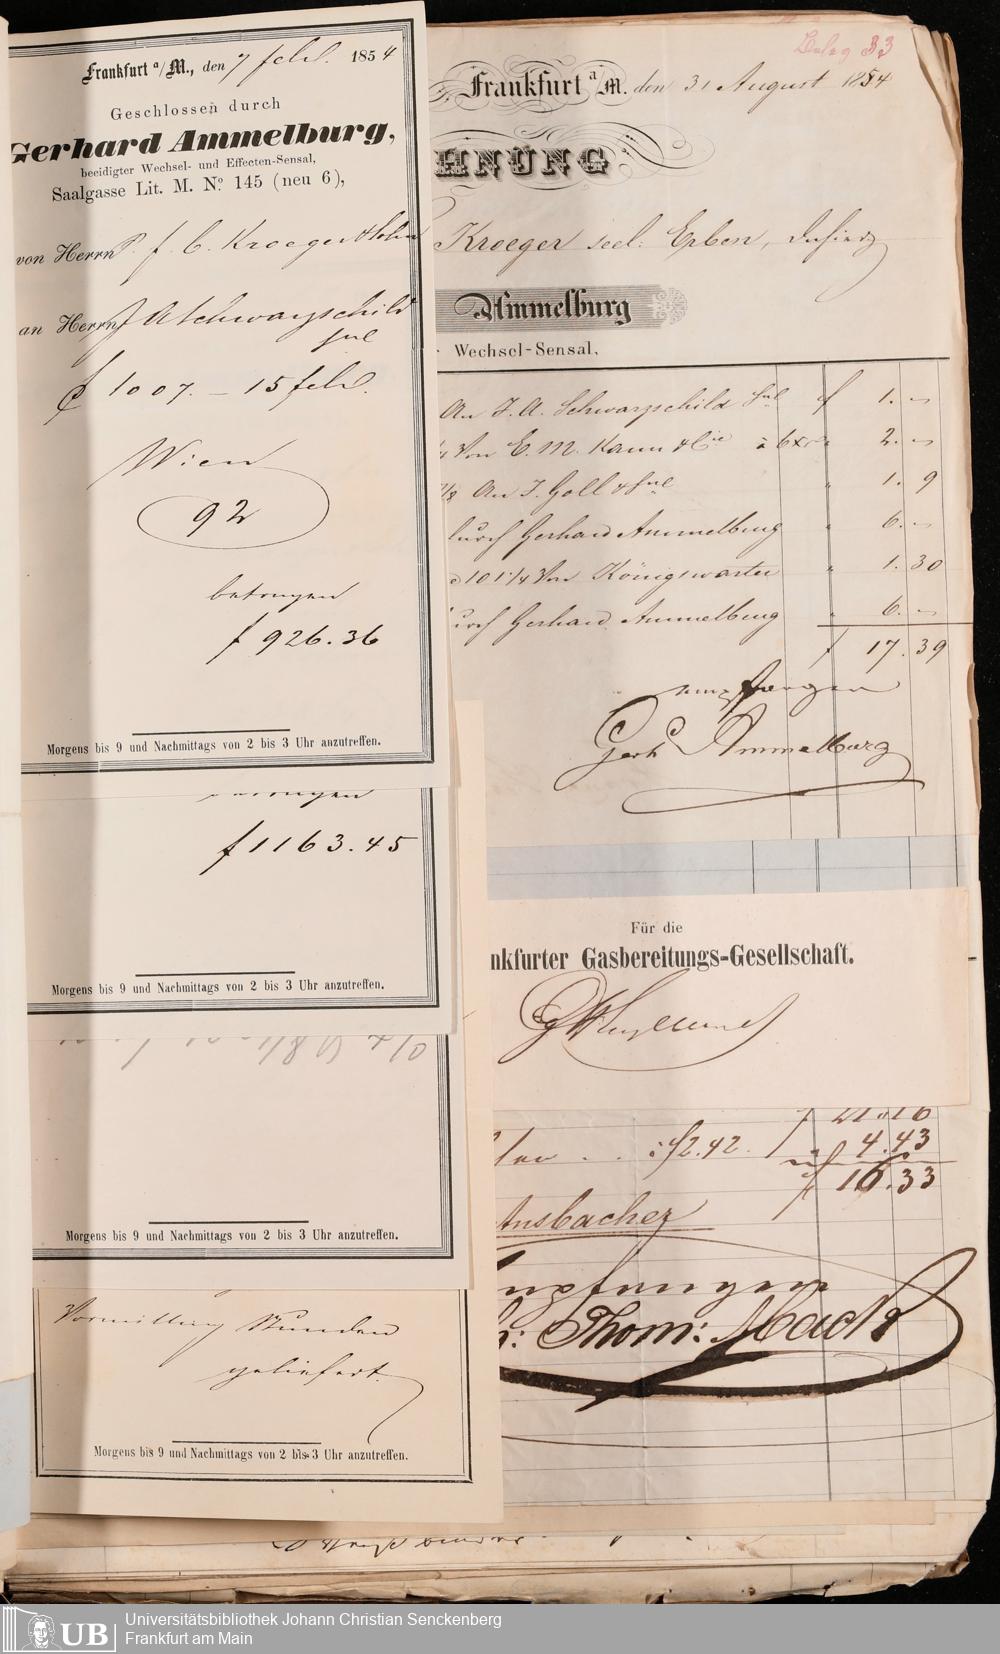 Frankfurt a/M., den 7 febr. 1854
Geschlossen durch
Gerhard Ammelburg,
beeidigter Wechsel- und Effecten-Sensal,
Saalgasse Lit. M. No. 145 (neu 6),
von Herrn P. f. C. Kroeger
an Herrn J A Schwarzschild
Sne
1007. – 15 febr.
Wien
92
betragen
f 926.36
Morgens bis 9 und Nachmittags von 2 bis 3 Uhr anzutreffen.
betragen
f 1163.45
Morgens bis 9 und Nachmittags von 2 bis 3 Uhr anzutreffen.
Morgens bis 9 und Nachmittags von 2 bis 3 Uhr anzutreffen.
Vormittag Stunden
geliefert.
Morgens bis 9 und Nachmittags von 2 bis 3 Uhr anzutreffen.
Beleg 33
Frankfurt a/M. den 31 August 1854
HNUNG
Kroeger seel: Erben,
Ammelburg
Wechsel-Sensal,
An J. A. Schwarzschild Sne f 1. "
Von E. M. Kann & Cie à 6xr " 2. "
An J. Goll & Sne " 1. 9
durch Gerhard Ammelburg " 6. "
101 1/4 Von Königswarter " 1. 30
durch Gerhard Ammelburg " 6. "
f 17. 39
empfangen
Gerhd Ammelburg
Für die
nkfurter Gasbereitungs-Gesellschaft.
f 21.16
à f 2.42. " 4.43
f 16.33
Ansbacher
Thom: Mack
Universitätsbibliothek Johann Christian Senckenberg
Frankfurt am Main
UB